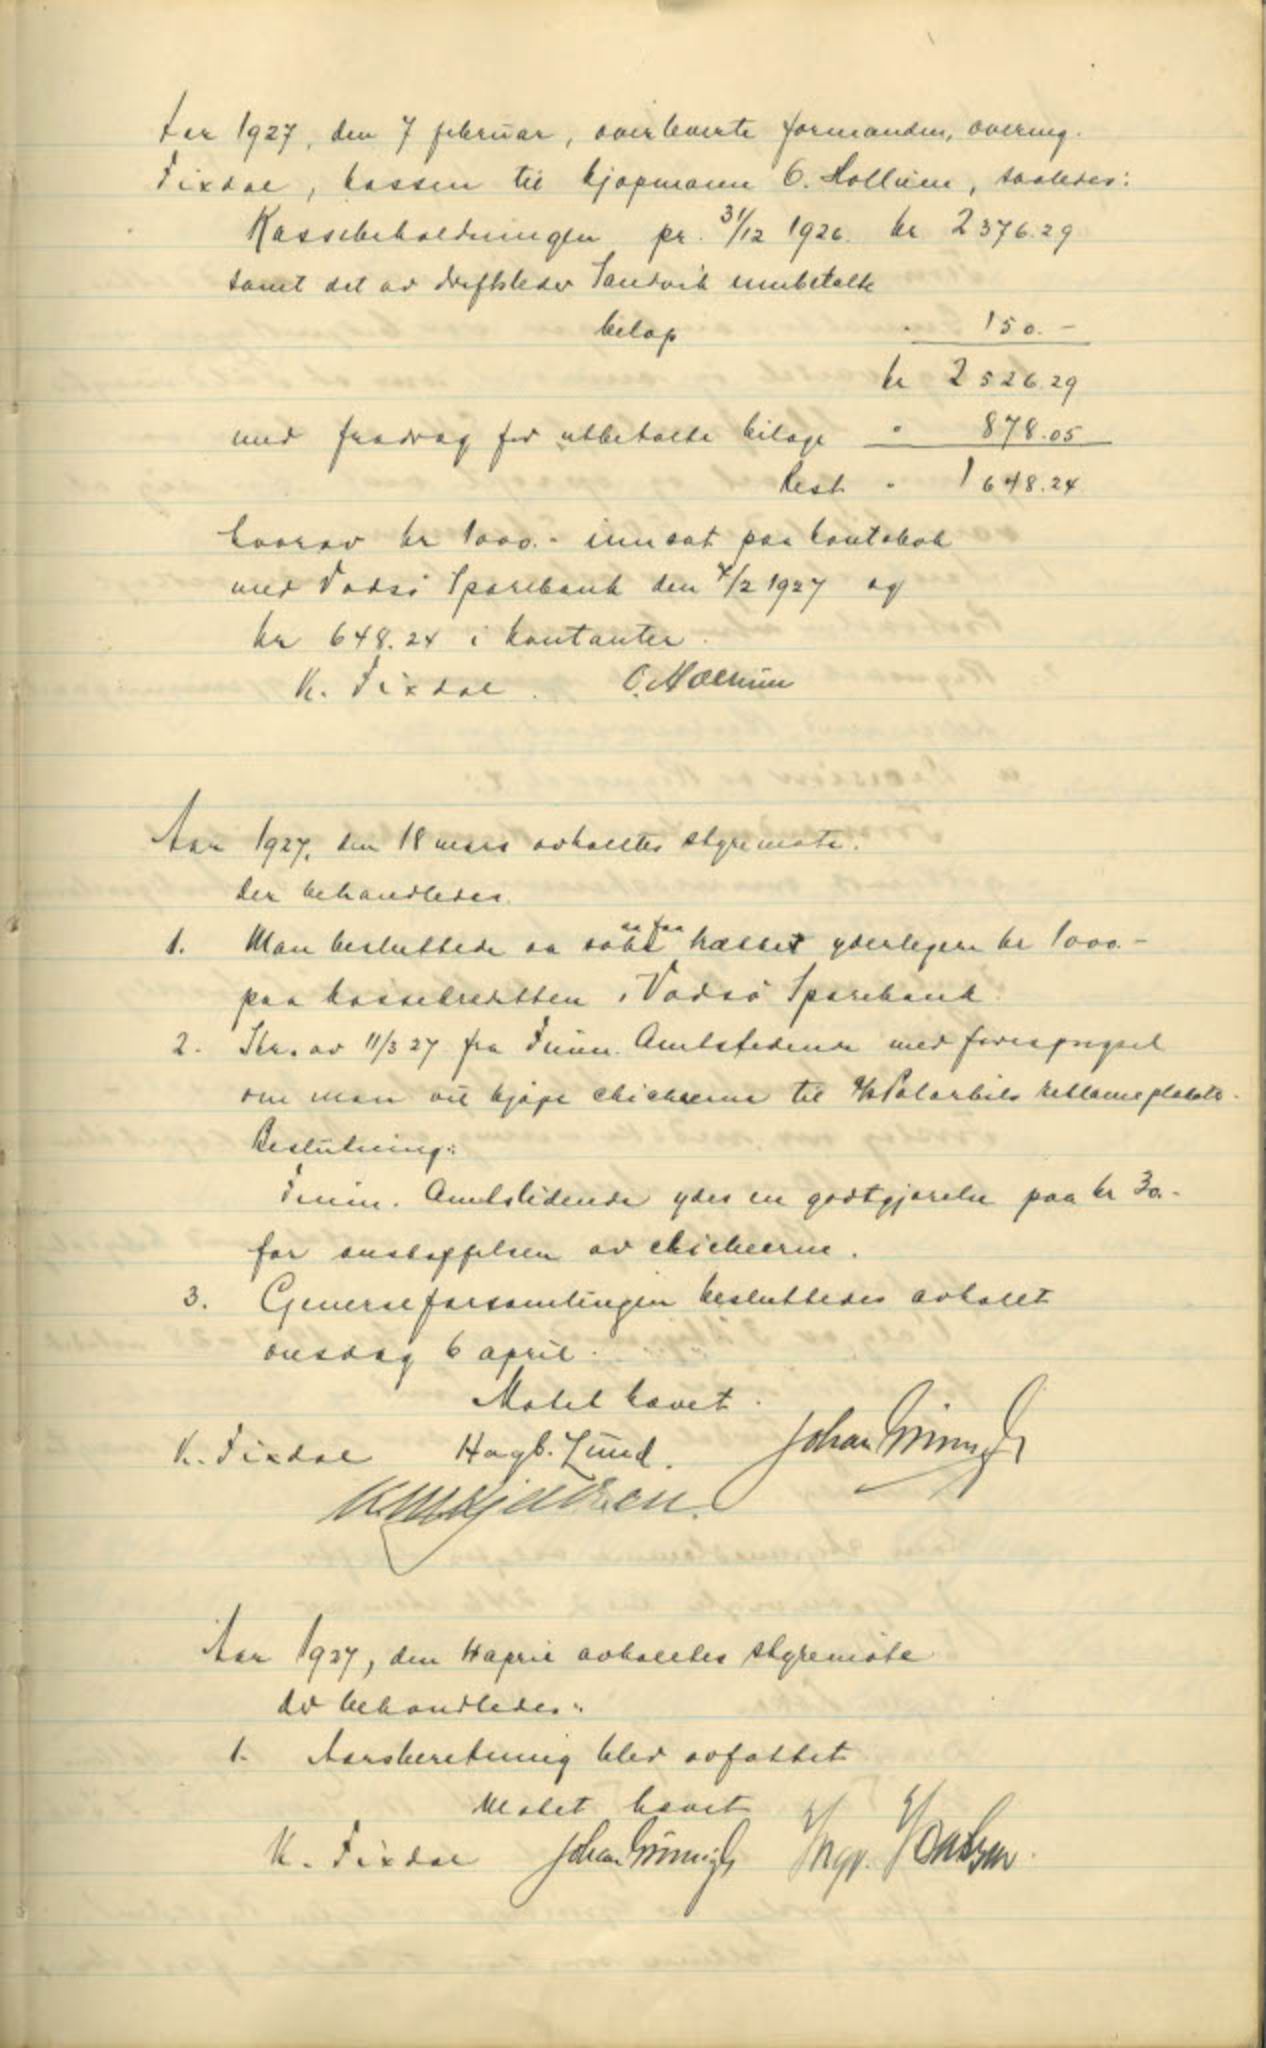 Aar 1927, den 7 februar, overleverte formanden, overing.
Fixdal, kassen til kjøpmann O. Hollum, saaledes:
Kassebeholdningen pr. 31/12 1926. kr 2376.29
samt det av driftsleder Sandvik innbetalte
beløp " 150.-
kr 2526.29
med fradrag for utbetalte bilage " 878.05
Rest " 1648.24
hvorav kr 1000.- innsat paa kontobok
med Vadsø Sparebank den 7/2 1927 og
kr 648.24 i kontanter.
K. Fixdal. O. Hollum
Aar 1927, den 18 mars avholdtes styremøte.
Der behandledes.
1. Man besluttede aa søke aa faa hævet yderligere kr 1000.-
paa kassekreditten i Vadsø Sparebank.
2. Skr. av 11/3 27 fra Finm. Amtstidende med forespørgsel
om man vil kjøpe chicheerne til A/S Polarbils reklameplakat.
Beslutning:
Finm. Amtstidende ydes en godtgjørelse paa kr 30.-
for anskaffelsen av chicheerne.
3. Generalforsamlingen besluttedes avholdt
onsdag 6 april.
Møtet hævet.
K. Fixdal Hagb. Lund. Johan
Aar 1927, den 4 april avholdtes styremøte
Der behandledes:
1. Aarsberetning blev avfattet
Møtet hævet
K. Fixdal Johan Ingv.